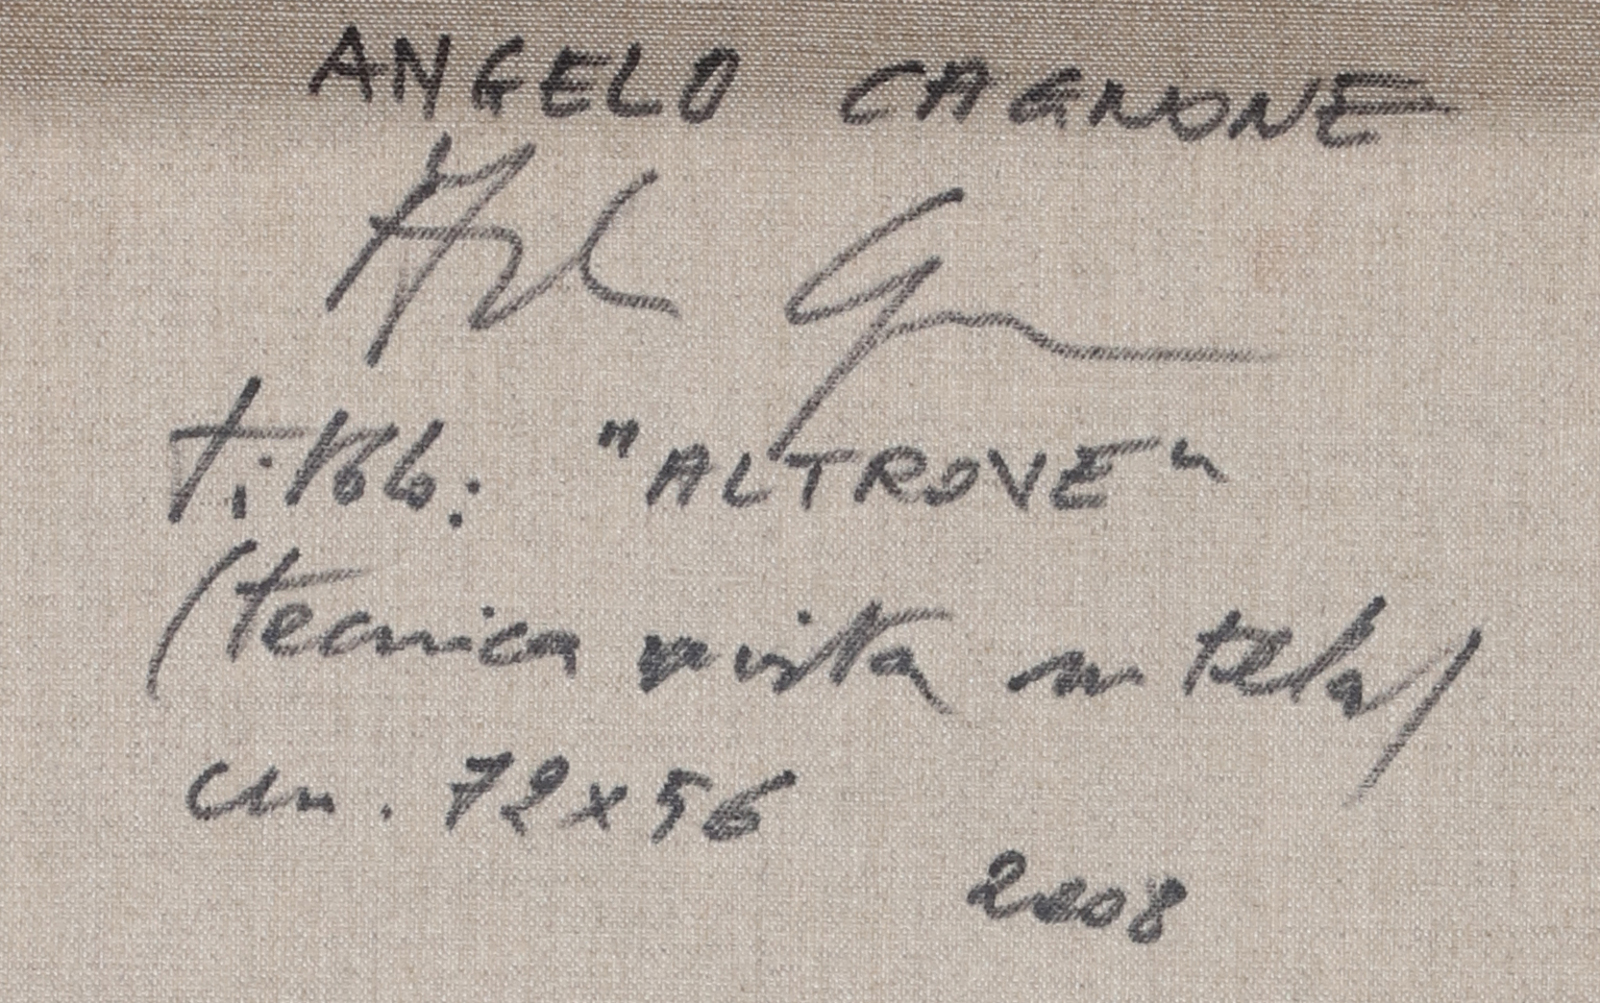 ANGELO CAGNONE
Angelo Cagnone
titolo: "ALTROVE"
(tecnica mista su tela)
cm. 72x56
2008